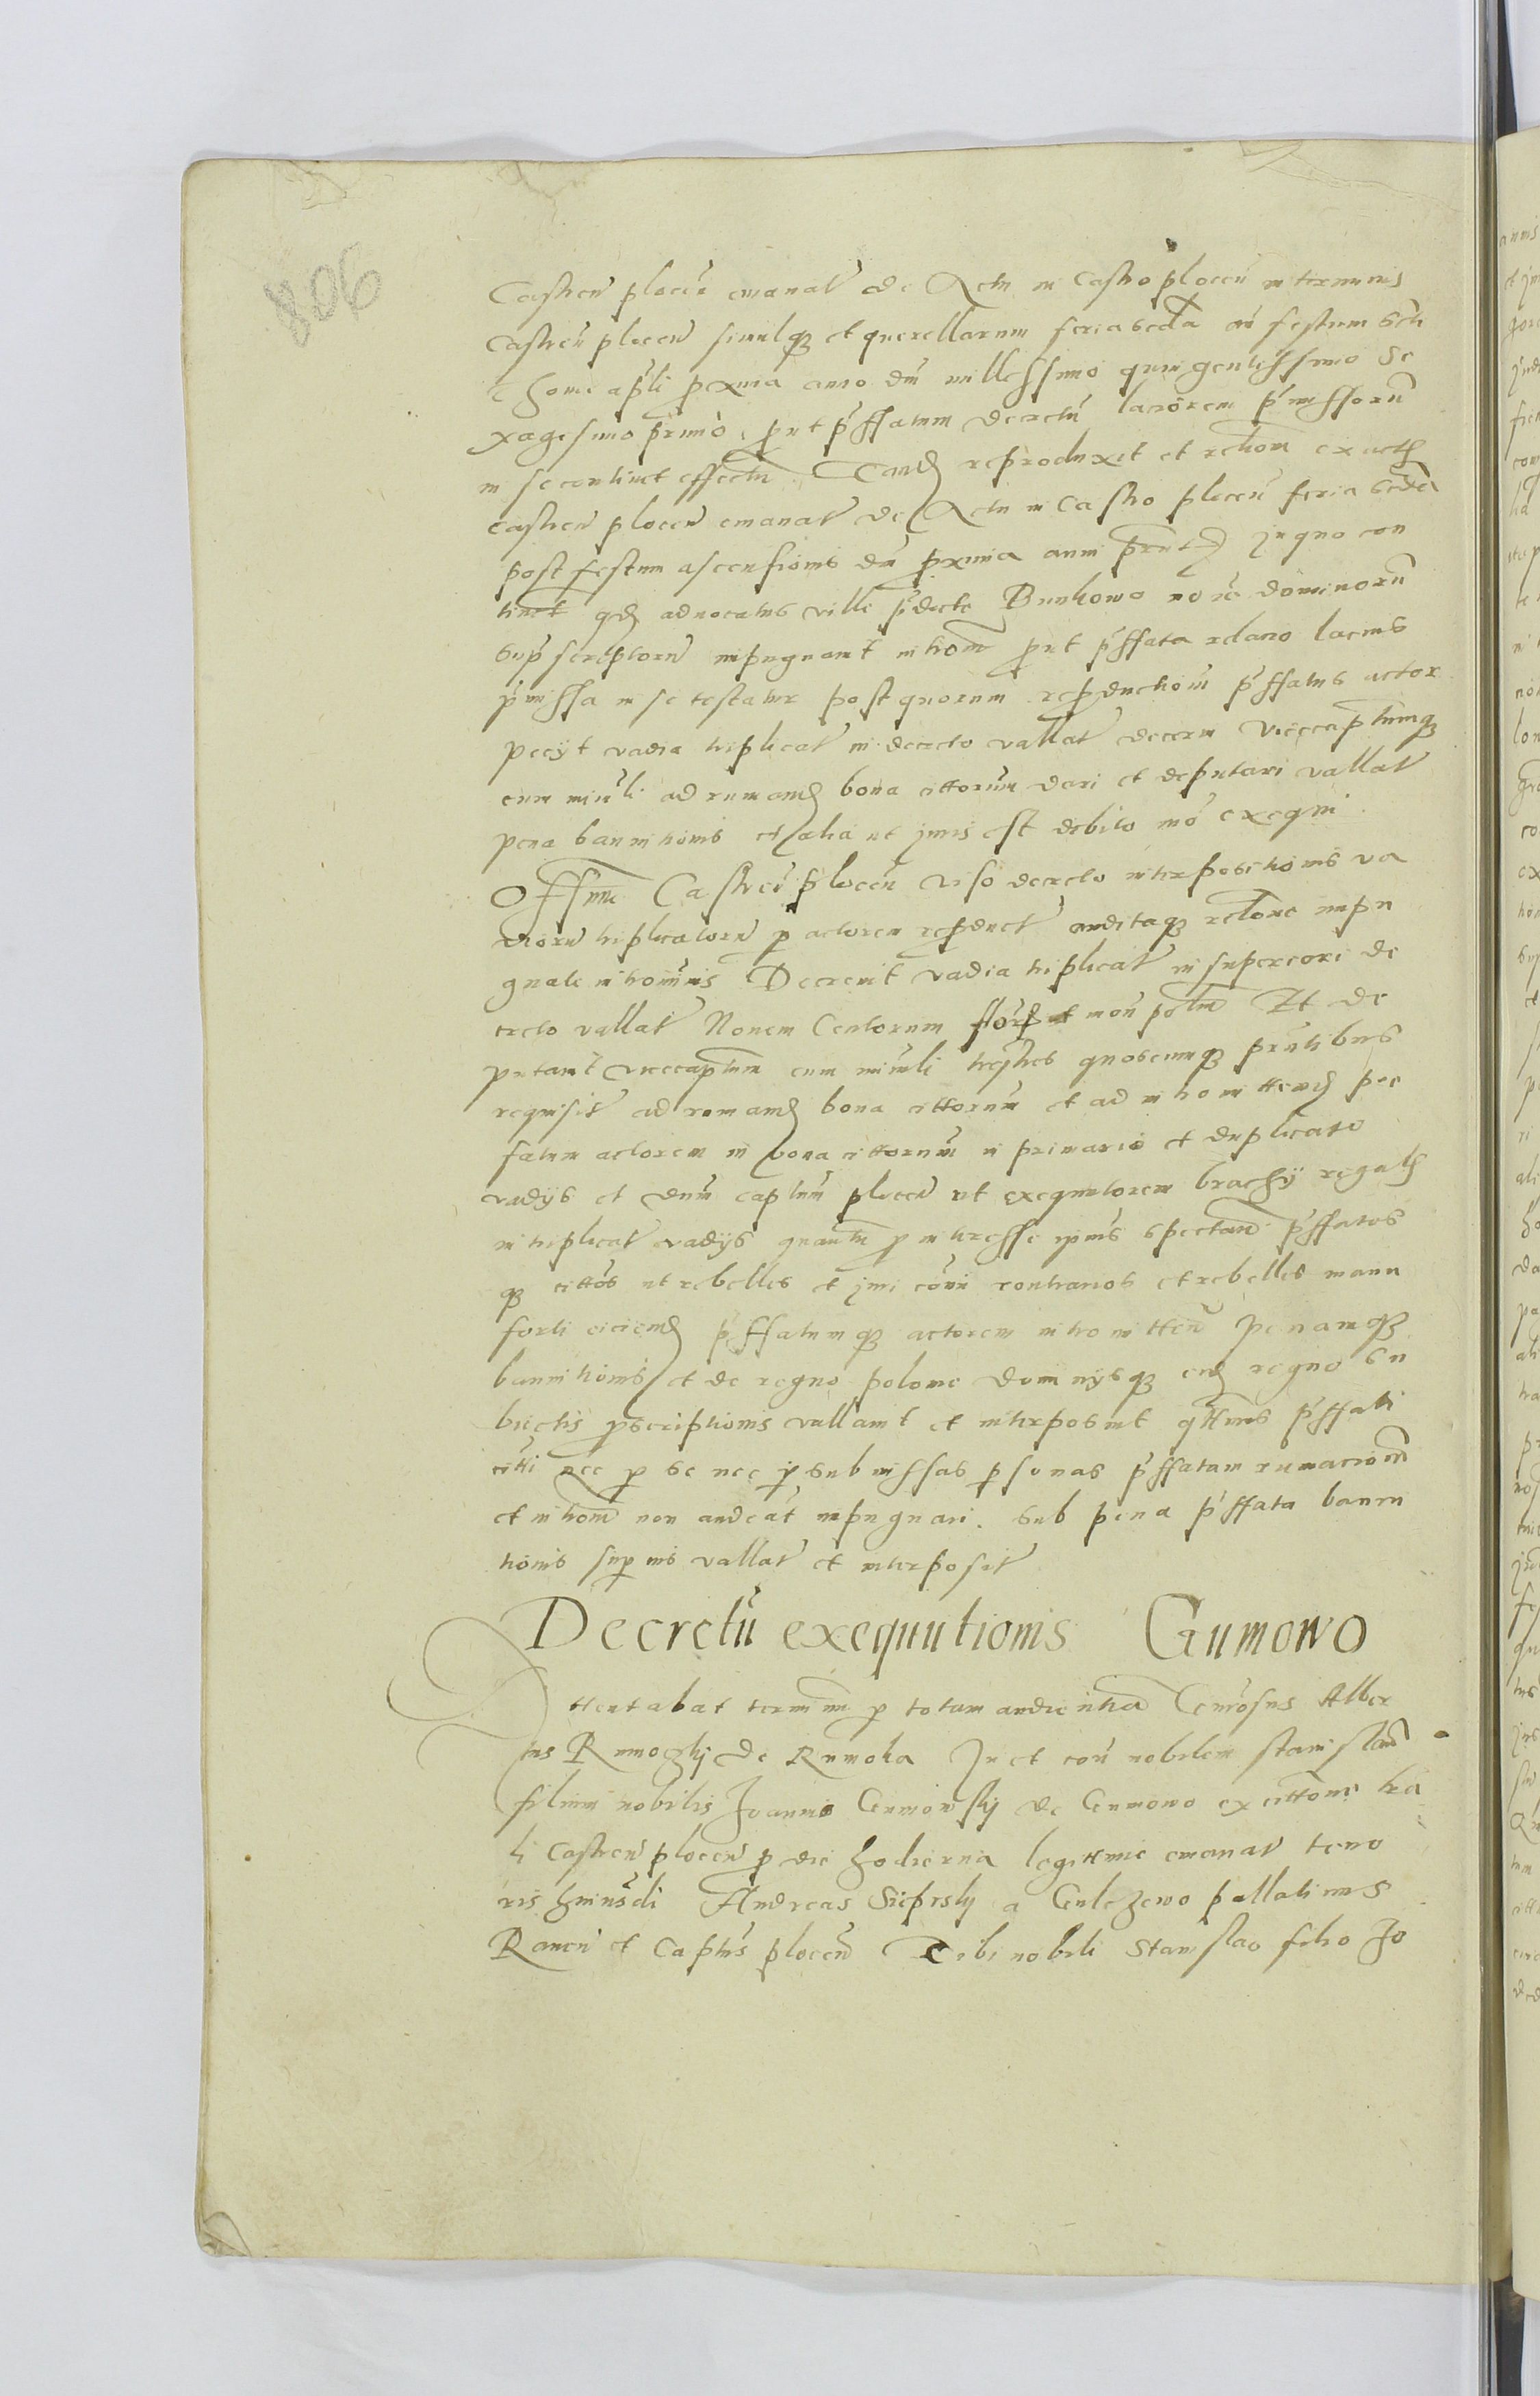 806
Castren plocen emanat de Actu in Castro plocen in terminis
Castren plocen simulq3 et querellarum feria secda an festum scti
Thome apli proxima anno dni millessimo quingentessimo Se
xagesimo primo, prut pffatum decretu laciorem pmissoru
in se continet effectu. Tand reproduxit et rectiom ex actis
castren plocen emanat de Actu in Castro plocen feria secda
post festum ascensionis dni proxima anni prnt In quo con
tinet qd advocatus ville pdicte Bunkowo noie dominoru
supscriptoru inpugnavit intiom prut pffata relatio lacius
pmissa in se testatur post quorum reproductiom pffatus actor
pecijt vadia triplicat in decreto vallat decerni vicecaptumq3
cum minli ad rumand bona cittorum dari et deputari vallat
pena bannitionis et alia ut juris est debito mo exequi
Offium Castren plocen viso decreto interpositionis va
dioru triplicatoru p actorem reproduct auditaq3 relone inpu
gnate intiominis Decrevit vadia triplicat in superiori de
creto vallat Novem Centorum flor mon polni Et de
putavit vicecaptum cum minli trejtes quoscumq3 prntibus
requisit ad rumand bona cittorum et ad intromittend pre
fatum actorem in bona cittorum in primario et duplicato
vadijs et dnum captum plocen ut exequutorem brachij regalis
in triplicat vadijs quantu p interesse ipius spectand pffatos
q3 cittos ut rebelles et juri coni contrarios et rebelles manu
forti eiciend pffatumq3 actorem intromitten penamq3
bannitionis et de regno polonie dominijsq3 eid regno su
biectis proscriptionis vallavit et interposuit qtenus pffati
citti nec p se nec p submissas psonas pffatam rumaciom
et intiom non audeat inpugnari. sub pena pffata banni
tionis supius vallat et interposit
Decretu exequutionis Gumowo
Attentabat terminum p totam audientia Generosus Alber
tus Rumoczkj de Rumoka In et con nobilem stanislau
filium nobilis Joannis Gumowskj de Gumowo ex cittone tra
li Castren plocen p die hodierna legittime emanat teno
ris huiusdi Andreas Sieprskj a Gulczewo pallatinus
Raven et Captus plocen Tibi nobili Stanislao filio Jo